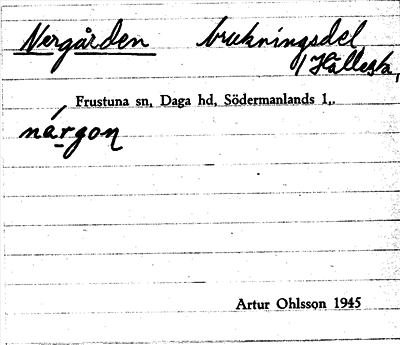 Nergården brukningsdel
i Hållesta,
Frustuna sn, Daga hd, Södermanlands l.
nárgon
Artur Ohlsson 1945